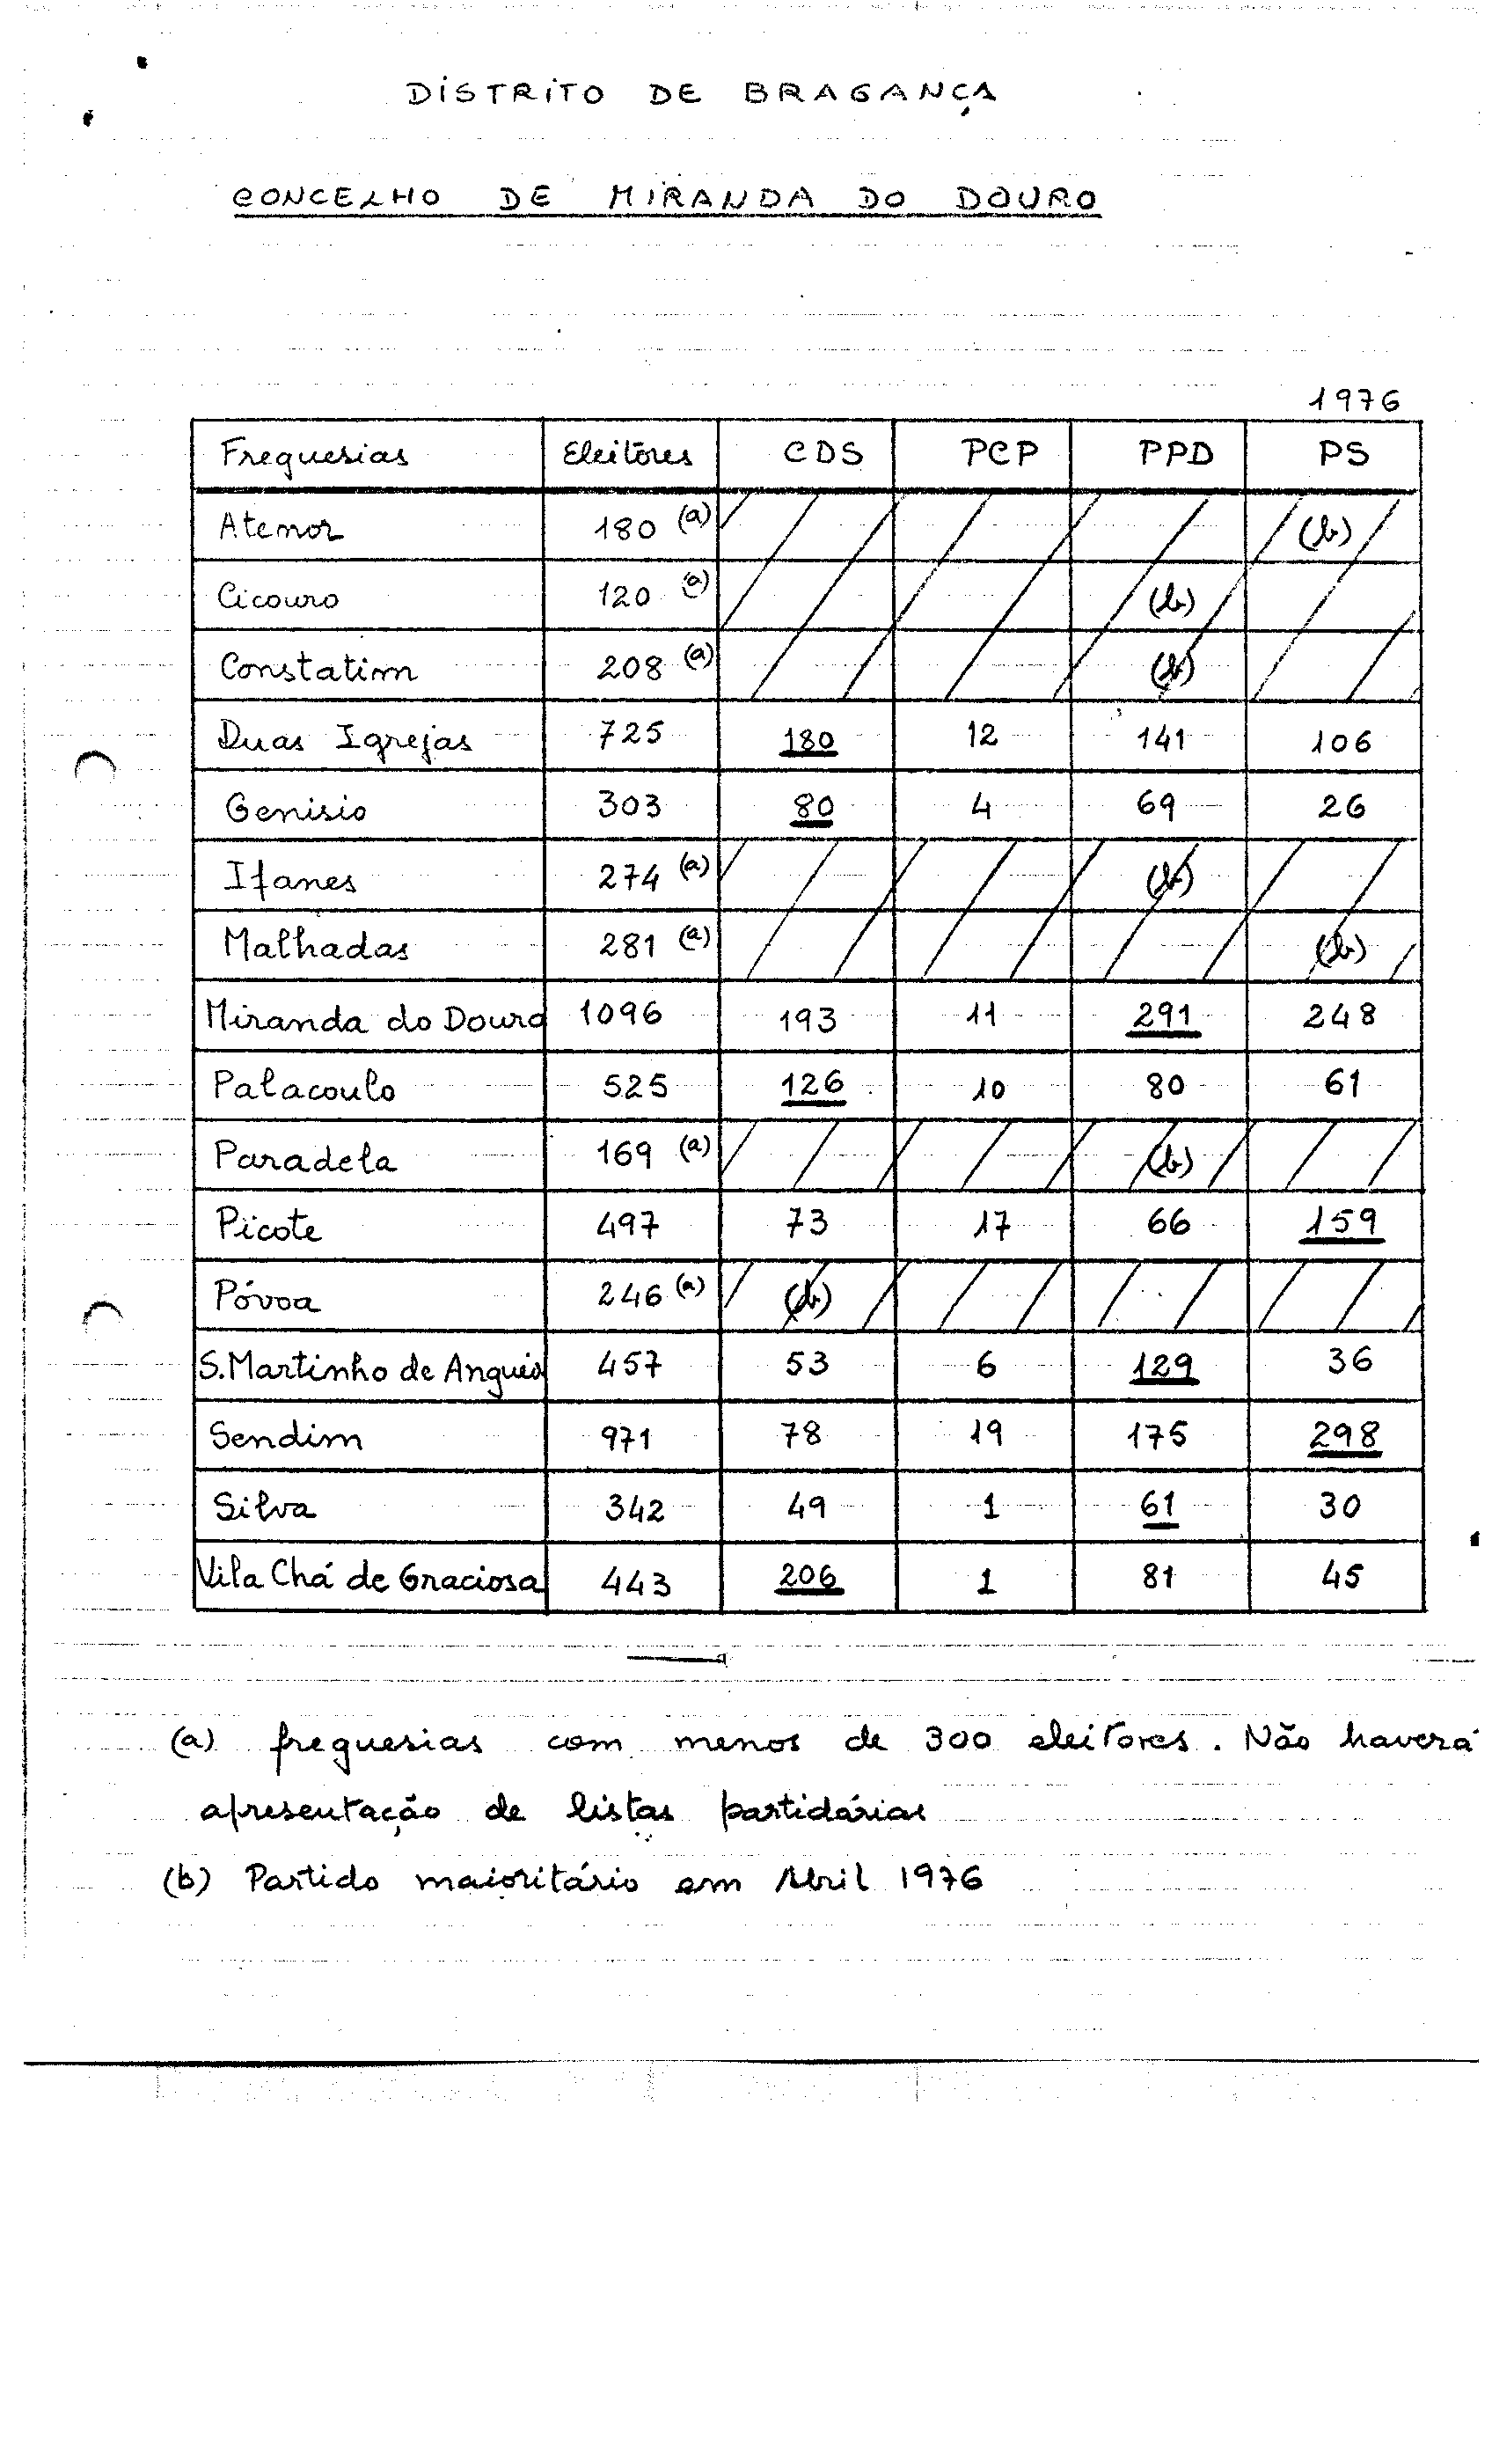 DISTRITO DE BRAGANÇA
CONCELHO DE MIRANDA DO DOURO
1976
Freguesias Eleitores CDS PCP PPD PS
Atenor 180 (a) (b)
Cicouro 120 (a) (b)
Constatim 208 (a) (b)
Duas Igrejas 725 180 12 141 106
Genisio 303 80 4 69 26
Ifanes 274 (a) (b)
Malhadas 281 (a) (b)
Miranda do Douro 1096 193 11 291 248
Palacoulo 525 126 10 80 61
Paradela 169 (a) (b)
Picote 497 73 17 66 159
Póvoa 246 (a) (b)
S. Martinho de Angueia 457 53 6 129 36
Sendim 971 78 19 175 298
Silva 342 49 1 61 30
Vila Chá de Graciosa 443 206 1 81 45
(a) freguesias com menos de 300 eleitores. Não haverá
apresentação de listas partidárias
(b) Partido maioritário em Abril 1976